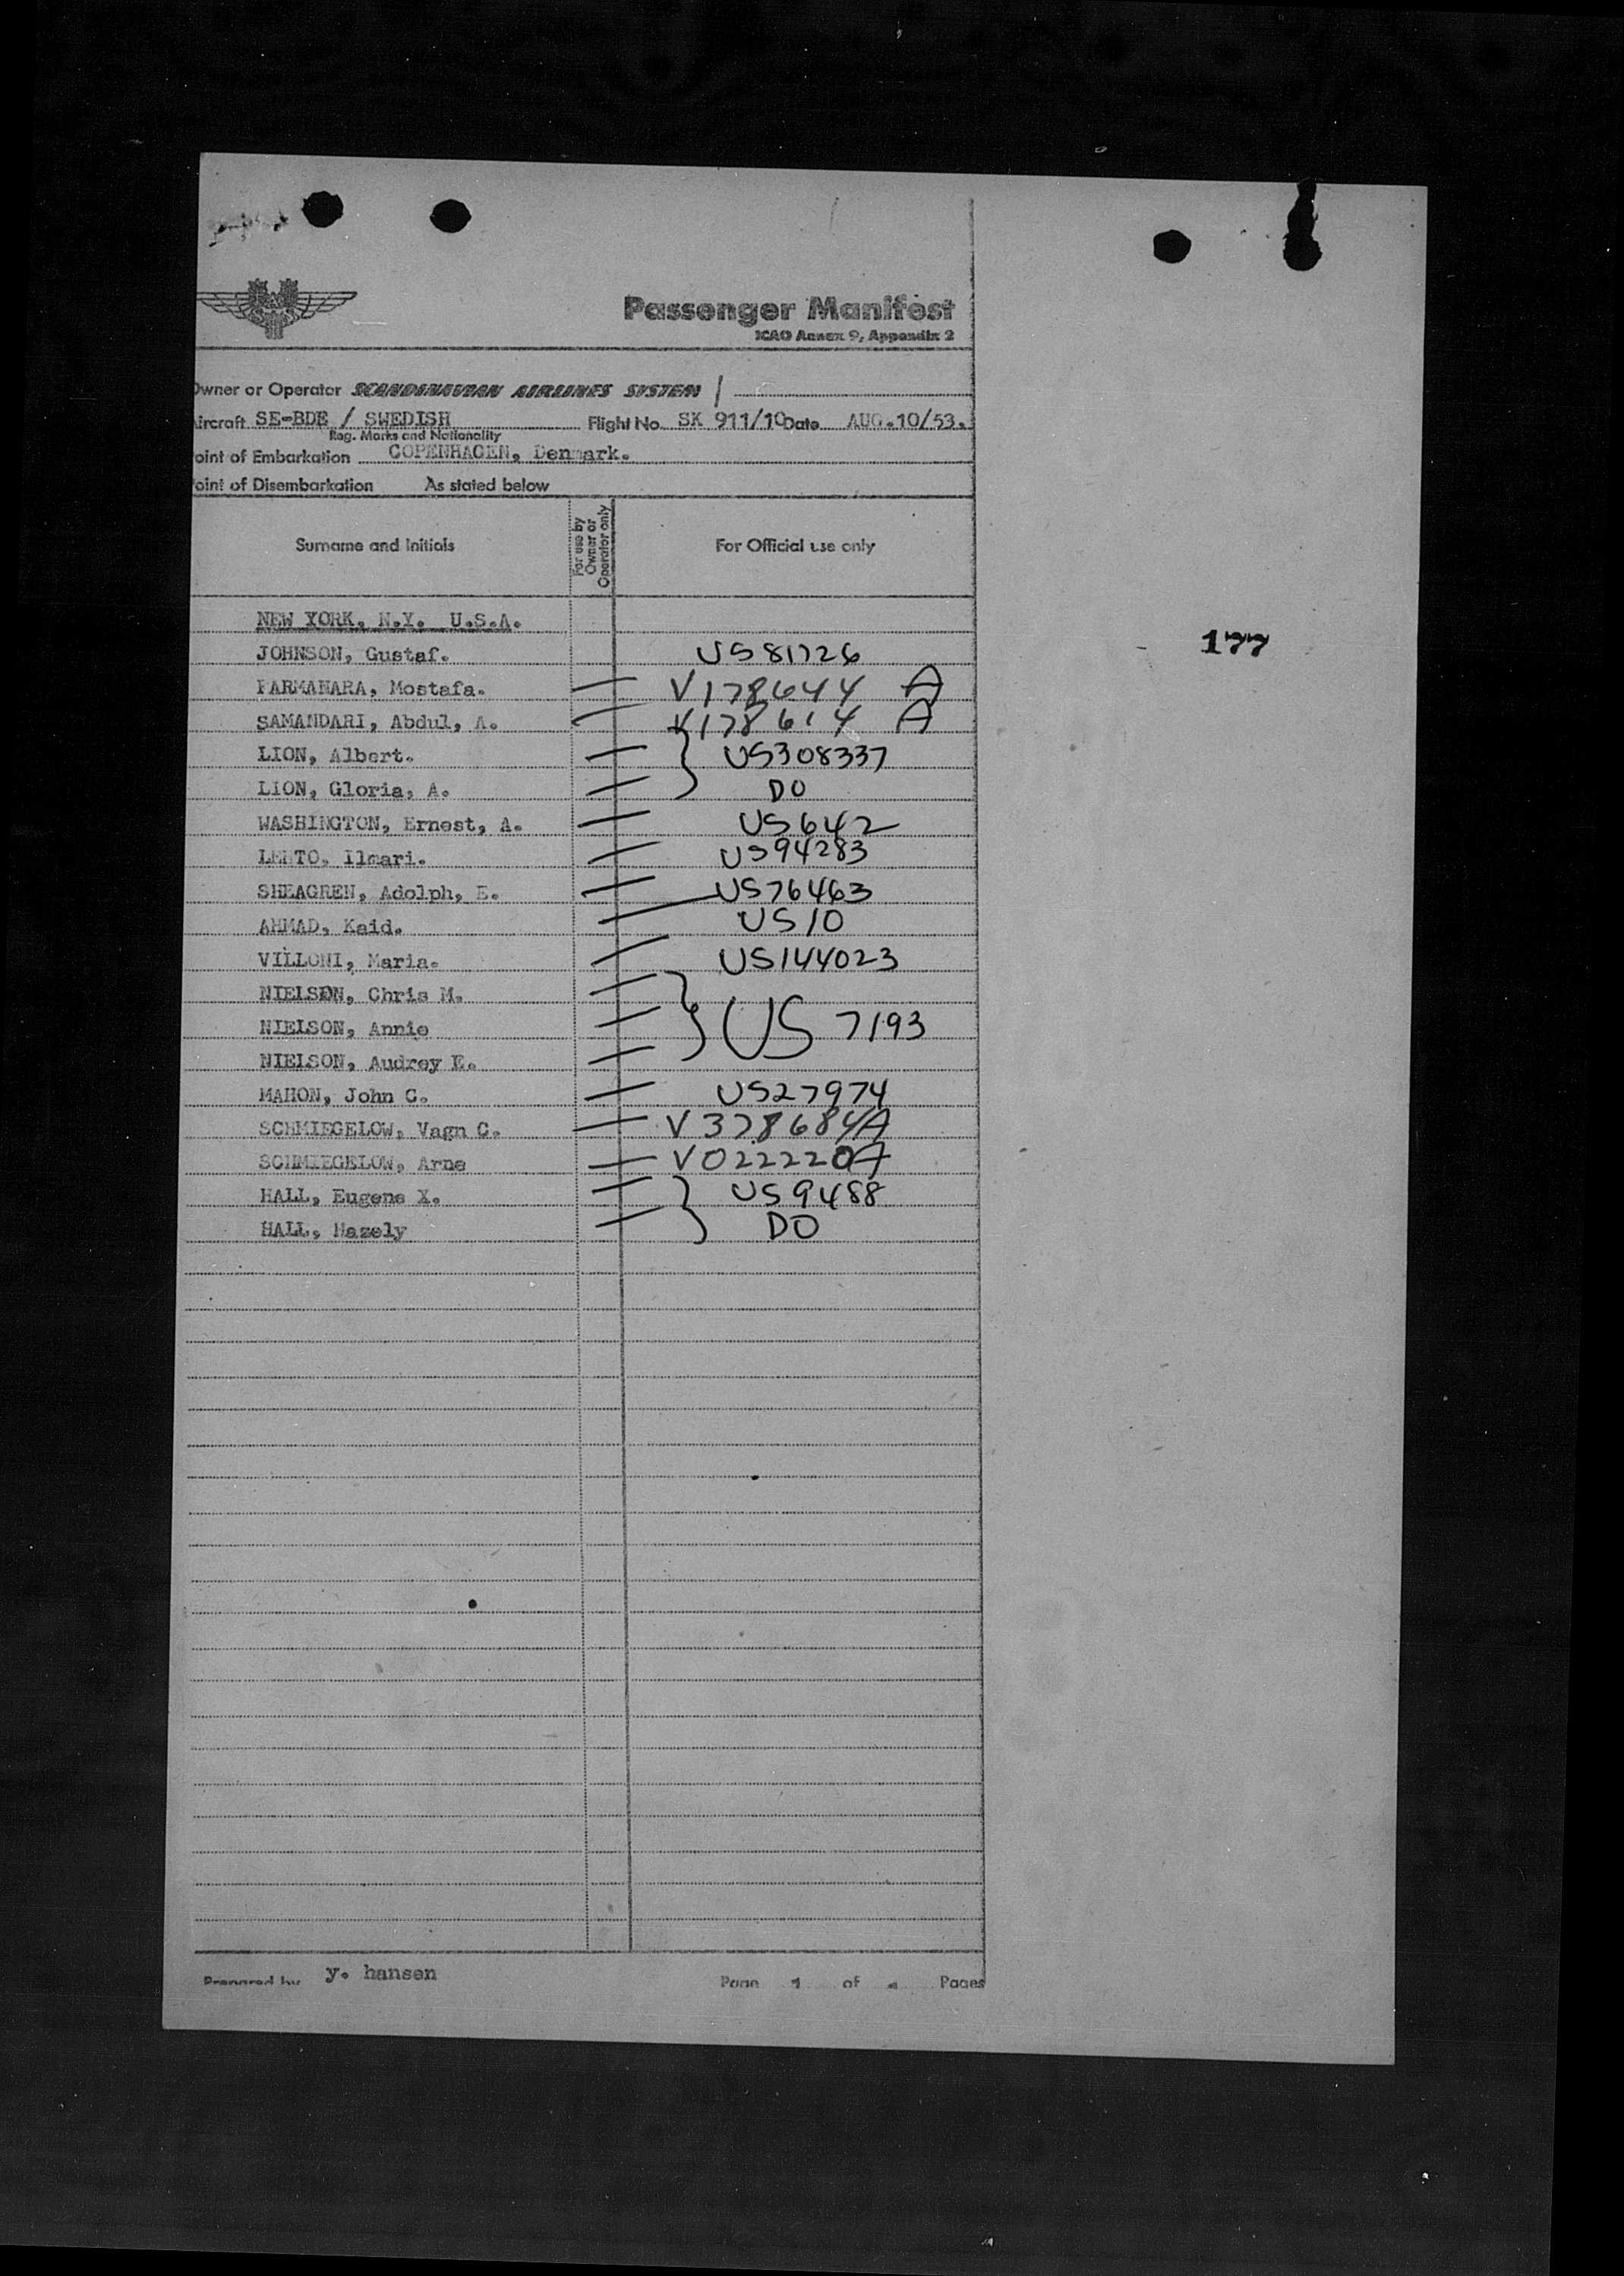 Passenger Manifest
ICAO Annex 9, Appendix 2
Owner or Operator SCANDINAVIAN AIRLINES SYSTEM
Aircraft SE-BDE / SWEDISH Flight No. SK 911/10 Date AUG.10/53.
Reg. Marks and Nationality
oint of Embarkation COPENHAGEN, Denmark.
oint of Disembarkation As stated below
Surname and Initials For use by Owner or Operator only For Official use only
NEW YORK, N.Y. U.S.A.
177
JOHNSON, Gustaf. US 81726
FARMANARA, Mostafa. V178644 A
SAMANDARI, Abdul, A. V178614 A
LION, Albert. US308337
LION, Gloria, A. DO
WASHINGTON, Ernest, A. US642
LEHTO, Ilmari. US94283
SHEAGREN, Adolph, E. US76463
AHMAD, Kaid. US10
VILLONI, Maria. US144023
NIELSON, Chris M.
NIELSON, Annie US 7193
NIELSON, Audrey E.
MAHON, John C. US27974
SCHMIEGELOW, Vagn C. V378684A
SCHMIEGELOW, Arne V022220A
HALL, Eugene X. US9488
HALL, Hazely DO
Prepared by y. hansen Page 1 of Pages